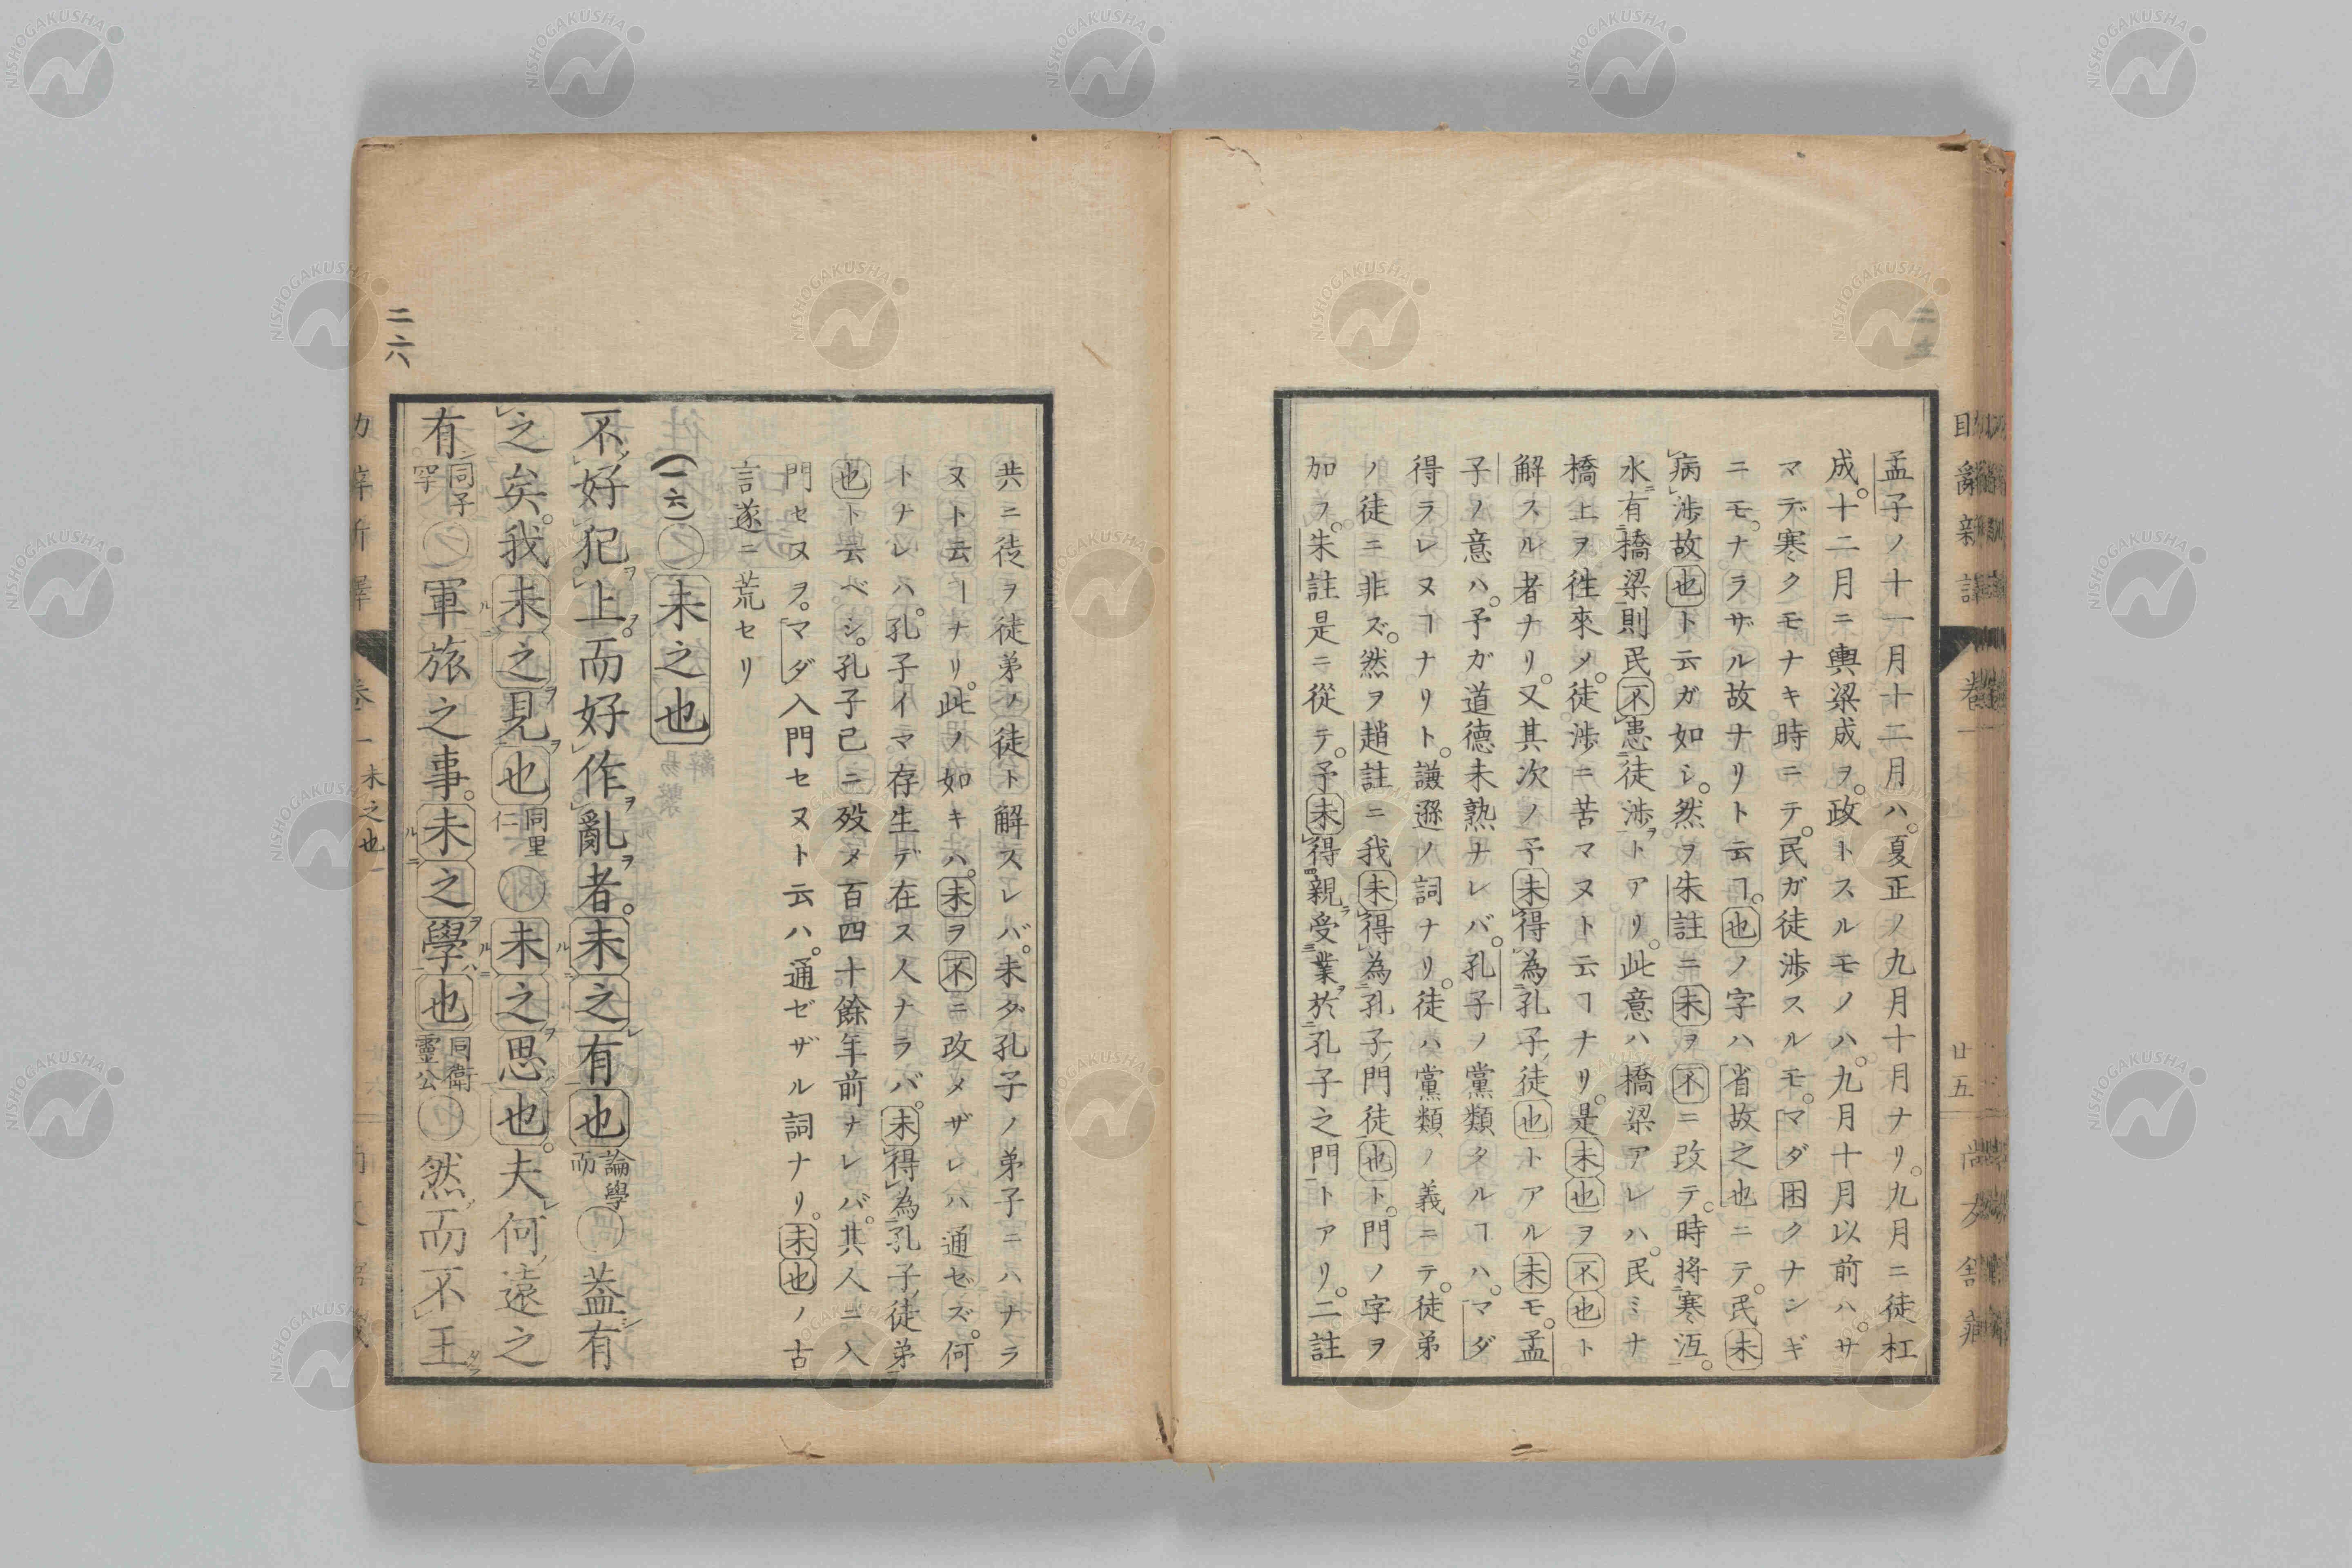 孟子ノ十一月十二月ハ。夏正ノ九月十月ナリ。九月ニ徒杠
成。十二月ニ輿梁成ヲ。政トスルモノハ。九月十月以前ハ。サ
マデ寒クモナキ時ニテ。民ガ徒渉スルモ。マダ困クナンギ
ニモ。ナラザル故ナリト云ヿ。也ノ字ハ省故之也ニテ。民未
病渉故也ト云ガ如シ。然ヲ朱註ニ未ヲ不ニ改テ。時将寒沍。
水有橋梁則民不患徒渉トアリ。此意ハ橋梁アレハ。民ミナ
橋上ヲ徃來ノ。徒渉ニ苦マヌト云ヿナリ。是未也ヲ不也ト
解スル者ナリ。又其次ノ予未得為孔子徒也トアル未モ。孟
子ノ意ハ。予ガ道德未熟ナレバ。孔子ノ黨類タルヿハ。マダ
得ラレヌヿナリト。謙遜ノ詞ナリ。徒ハ黨類ノ義ニテ。徒弟
ノ徒ニ非ズ。然ヲ趙註ニ我未得為孔子門徒也ト。門ノ字ヲ
加フ。朱註是ニ從テ。予未得親受業於孔子之門トアリ。二註
共ニ徒ヲ徒弟ノ徒ト解スレバ。未タ孔子ノ弟子ニハナラ
ヌト云ーナリ。此ノ如キハ。未ヲ不ニ改メザレハ通ゼズ。何
トナレハ。孔子イマ存生デ在ス人ナラバ。未得為孔子徒弟
也ト云ベシ。孔子已ニ殁メ百四十餘年前ナレバ。其人ニ入
門セヌヲ。マダ入門セヌト云ハ。通ゼザル詞ナリ。未也ノ古
言遂ニ荒セリ
(一六)〇未之也
不好犯上。而好作亂者。未之有也 論學而 〇蓋有
之矣。我未之見也 同里仁 〇未之思也。夫何遠之
有 同子罕 〇軍旅之事。未之學也 同衛靈公 〇然而不王
二六
卷一 未之也
助辭新譯 卷一
廿五